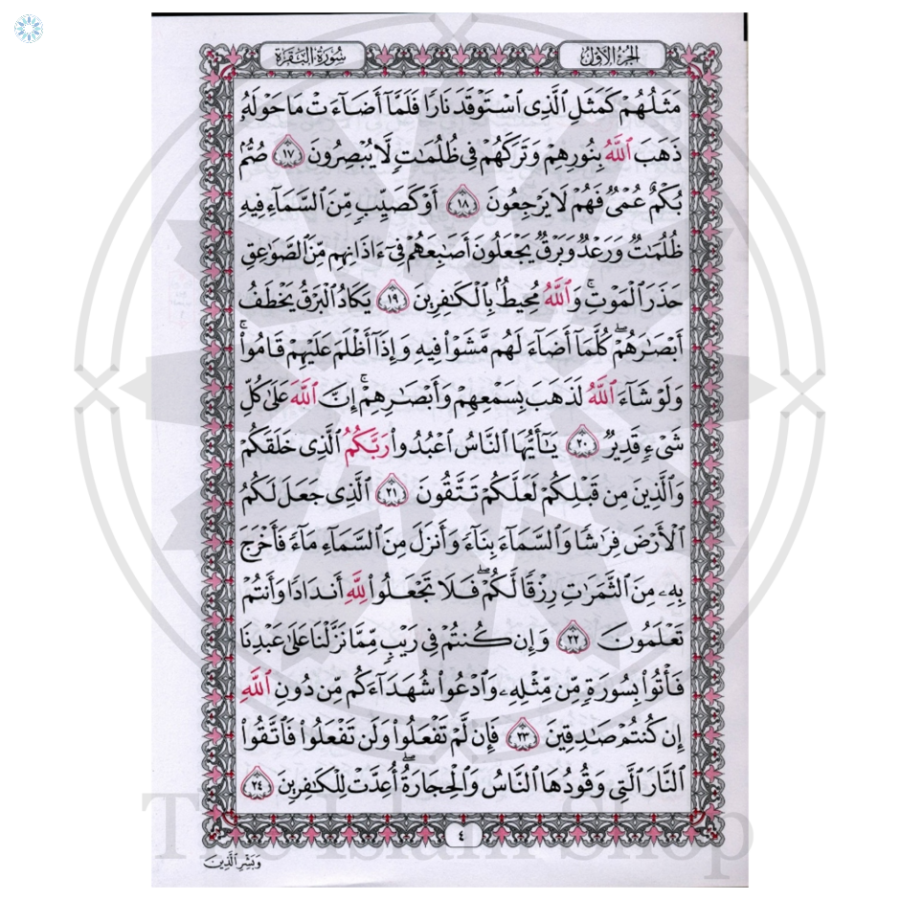 الجزء الأول
سورة البقرة
مَثَلُهُمْ كَمَثَلِ ٱلَّذِى ٱسْتَوْقَدَ نَارًا فَلَمَّآ أَضَآءَتْ مَا حَوْلَهُۥ
ذَهَبَ ٱللَّهُ بِنُورِهِمْ وَتَرَكَهُمْ فِى ظُلُمَٰتٍ لَّا يُبْصِرُونَ ١٧ صُمٌّۢ
بُكْمٌ عُمْىٌ فَهُمْ لَا يَرْجِعُونَ ١٨ أَوْ كَصَيِّبٍ مِّنَ ٱلسَّمَآءِ فِيهِ
ظُلُمَٰتٌ وَرَعْدٌ وَبَرْقٌ يَجْعَلُونَ أَصَٰبِعَهُمْ فِىٓ ءَاذَانِهِم مِّنَ ٱلصَّوَٰعِقِ
حَذَرَ ٱلْمَوْتِ ۚ وَٱللَّهُ مُحِيطٌۢ بِٱلْكَٰفِرِينَ ١٩ يَكَادُ ٱلْبَرْقُ يَخْطَفُ
أَبْصَٰرَهُمْ ۖ كُلَّمَآ أَضَآءَ لَهُم مَّشَوْا۟ فِيهِ وَإِذَآ أَظْلَمَ عَلَيْهِمْ قَامُوا۟ ۚ
وَلَوْ شَآءَ ٱللَّهُ لَذَهَبَ بِسَمْعِهِمْ وَأَبْصَٰرِهِمْ ۚ إِنَّ ٱللَّهَ عَلَىٰ كُلِّ
شَىْءٍ قَدِيرٌ ٢٠ يَٰٓأَيُّهَا ٱلنَّاسُ ٱعْبُدُوا۟ رَبَّكُمُ ٱلَّذِى خَلَقَكُمْ
وَٱلَّذِينَ مِن قَبْلِكُمْ لَعَلَّكُمْ تَتَّقُونَ ٢١ ٱلَّذِى جَعَلَ لَكُمُ
ٱلْأَرْضَ فِرَٰشًا وَٱلسَّمَآءَ بِنَآءً وَأَنزَلَ مِنَ ٱلسَّمَآءِ مَآءً فَأَخْرَجَ
بِهِۦ مِنَ ٱلثَّمَرَٰتِ رِزْقًا لَّكُمْ ۖ فَلَا تَجْعَلُوا۟ لِلَّهِ أَندَادًا وَأَنتُمْ
تَعْلَمُونَ ٢٢ وَإِن كُنتُمْ فِى رَيْبٍ مِّمَّا نَزَّلْنَا عَلَىٰ عَبْدِنَا
فَأْتُوا۟ بِسُورَةٍ مِّن مِّثْلِهِۦ وَٱدْعُوا۟ شُهَدَآءَكُم مِّن دُونِ ٱللَّهِ
إِن كُنتُمْ صَٰدِقِينَ ٢٣ فَإِن لَّمْ تَفْعَلُوا۟ وَلَن تَفْعَلُوا۟ فَٱتَّقُوا۟
ٱلنَّارَ ٱلَّتِى وَقُودُهَا ٱلنَّاسُ وَٱلْحِجَارَةُ ۖ أُعِدَّتْ لِلْكَٰفِرِينَ ٢٤
٤
وَبَشِّرِ ٱلَّذِينَ
The Islam Shop